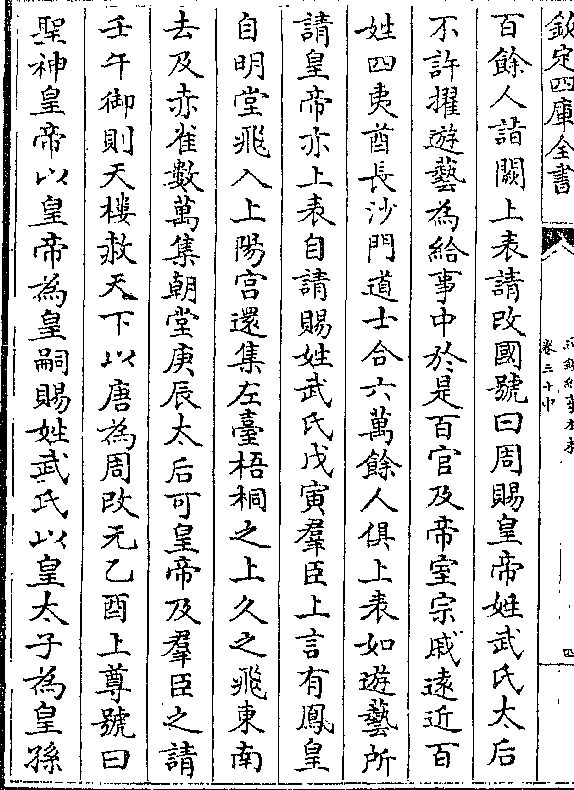 欽定四庫全書
卷三十中
四
百餘人詣闕上表請改國號曰周賜皇帝姓武氏太后
不許擢遊藝為給事中於是百官及帝室宗戚遠近百
姓四夷酋長沙門道士合六萬餘人俱上表如遊藝所
請皇帝亦上表自請賜姓武氏戊寅羣臣上言有鳳皇
自明堂飛入上陽宮還集左臺梧桐之上久之飛東南
去及赤雀數萬集朝堂庚辰太后可皇帝及羣臣之請
壬午御則天樓赦天下以唐為周改元乙酉上尊號曰
聖神皇帝以皇帝為皇嗣賜姓武氏以皇太子為皇孫